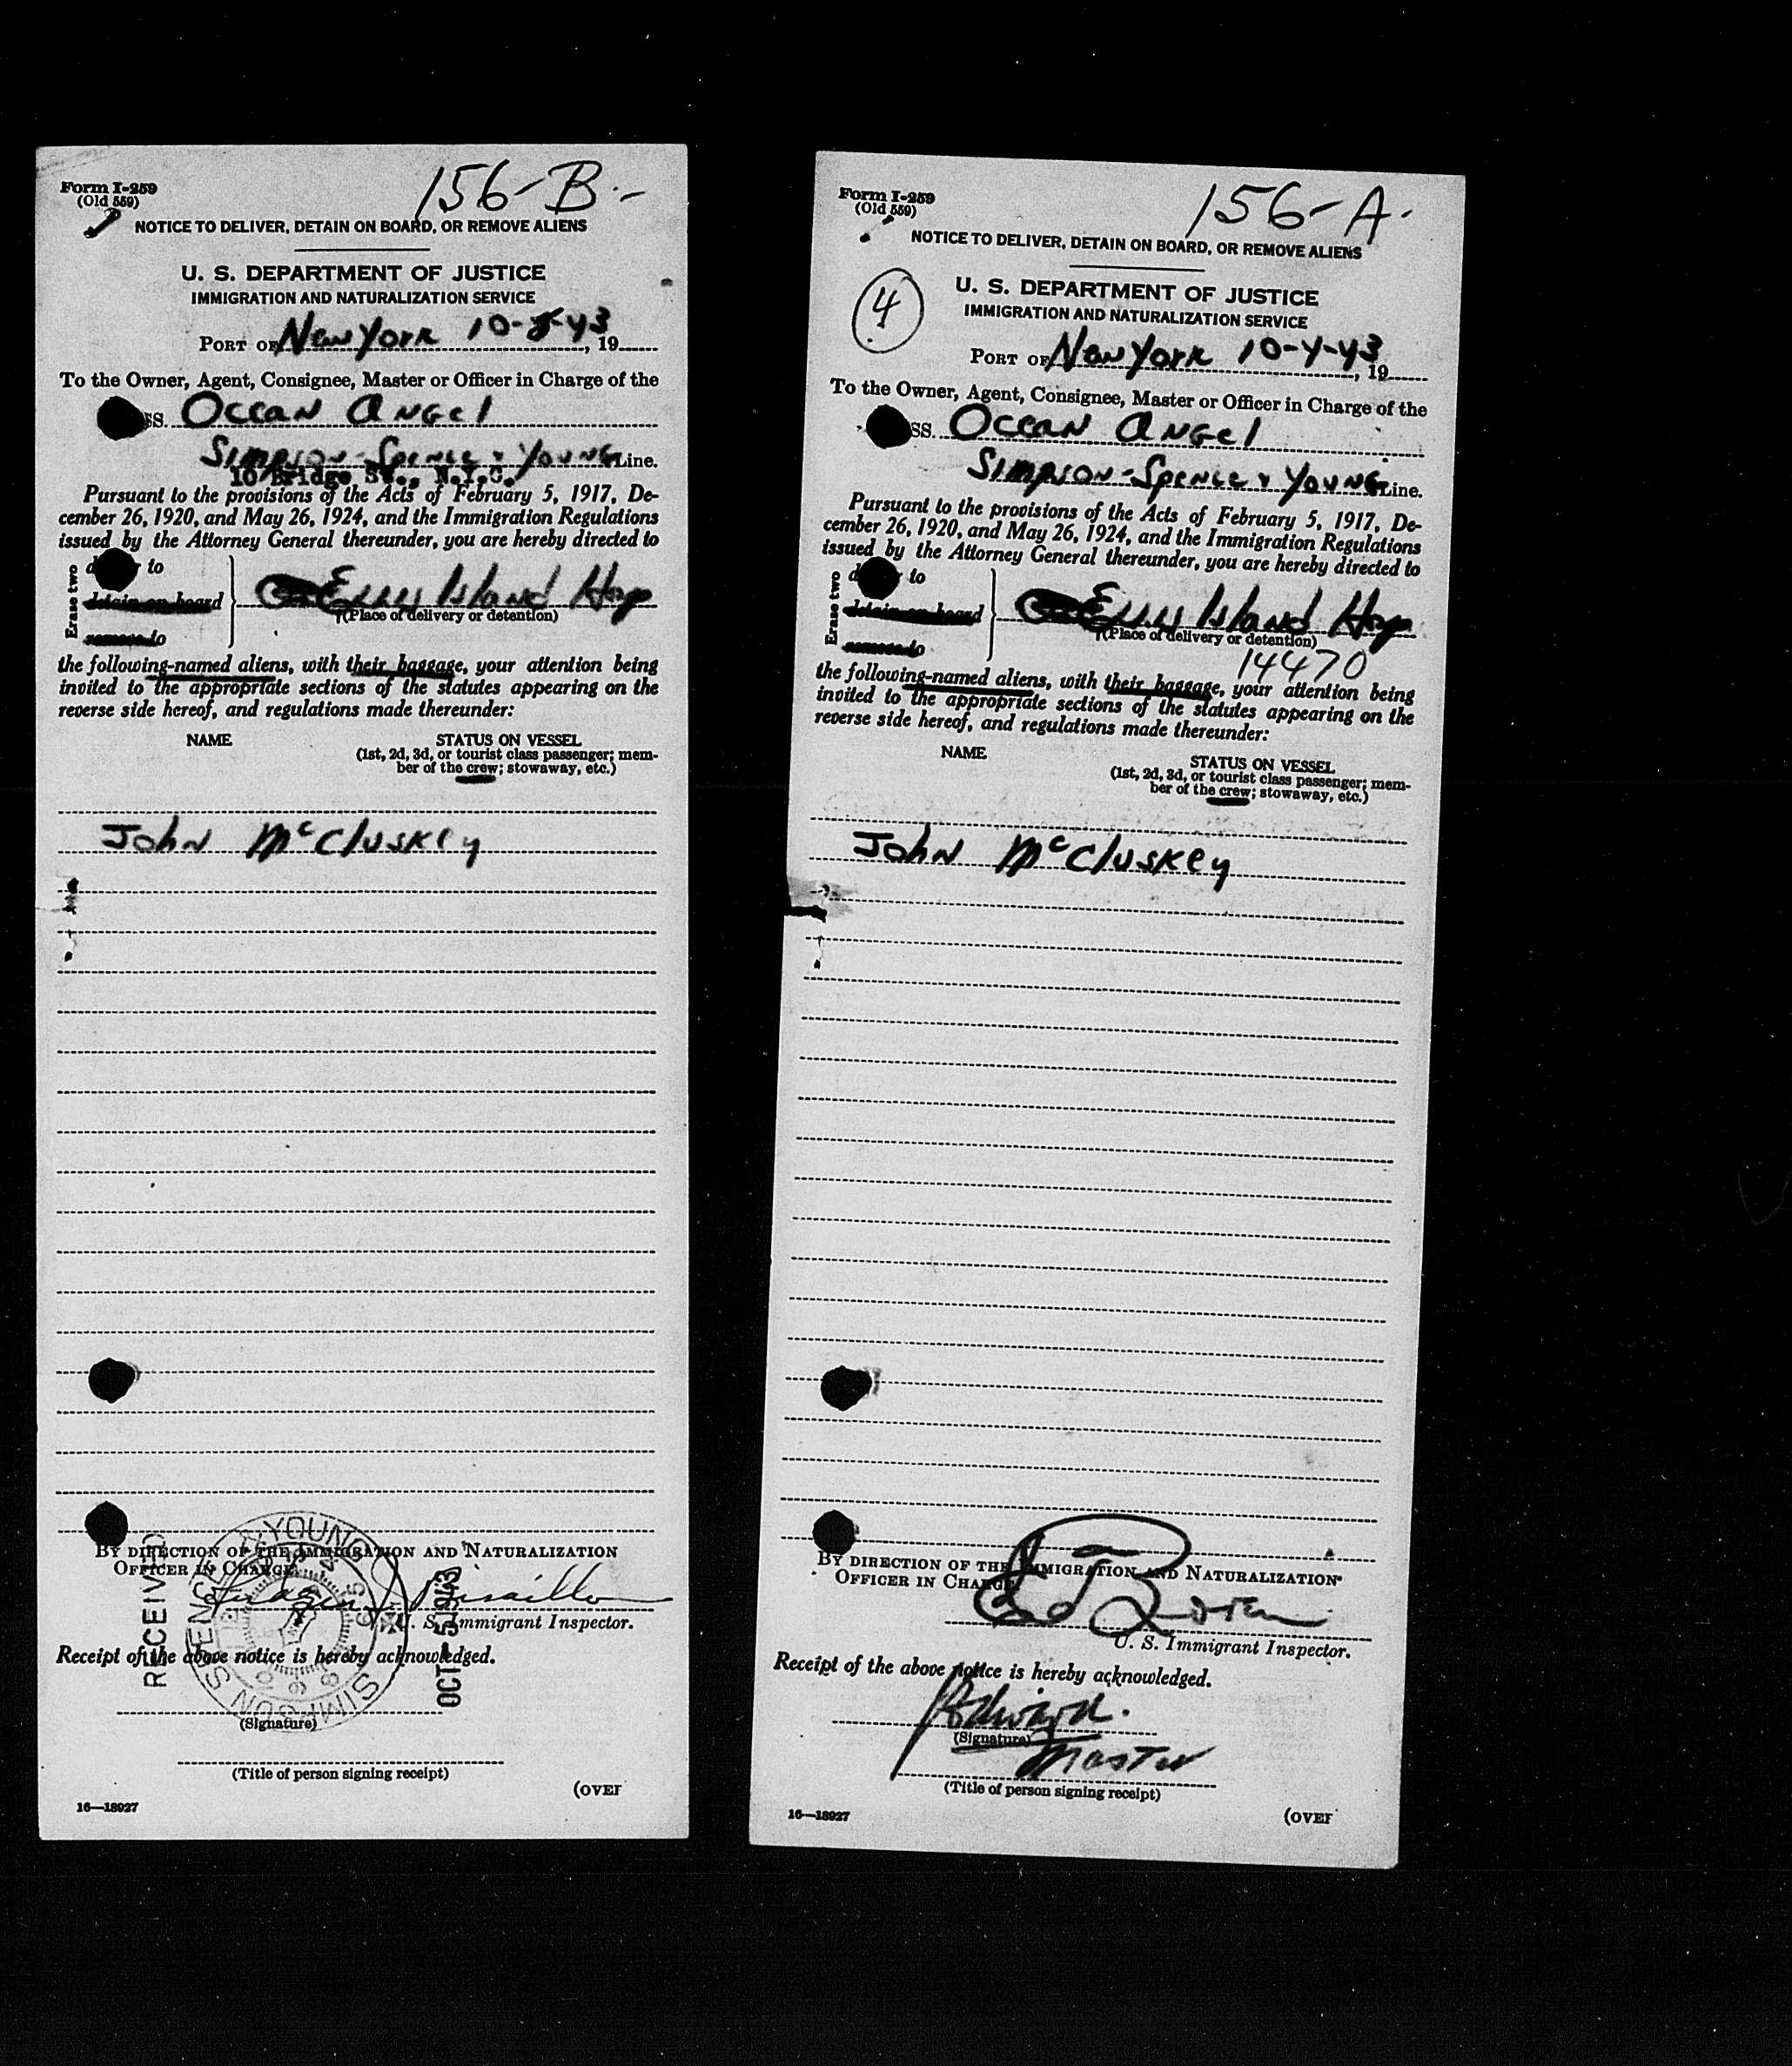 Form I-259
(Old 559)
156-B.-
NOTICE TO DELIVER, DETAIN ON BOARD, OR REMOVE ALIENS
U. S. DEPARTMENT OF JUSTICE
IMMIGRATION AND NATURALIZATION SERVICE
PORT OF New York 10- -43, 19
To the Owner, Agent, Consignee, Master or Officer in Charge of the
SS. Ocean Angel
Simpson-Spence & Young Line.
10 Bridge St., N.Y.C.
Pursuant to the provisions of the Acts of February 5, 1917, De-
cember 26, 1920, and May 26, 1924, and the Immigration Regulations
issued by the Attorney General thereunder, you are hereby directed to
Erase two
to
detain on board
remove to
Ellis Island Hosp
(Place of delivery or detention)
the following-named aliens, with their baggage, your attention being
invited to the appropriate sections of the statutes appearing on the
reverse side hereof, and regulations made thereunder:
NAME
STATUS ON VESSEL
(1st, 2d, 3d, or tourist class passenger; mem-
ber of the crew; stowaway, etc.)
John McCluskey
BY DIRECTION OF THE IMMIGRATION AND NATURALIZATION
OFFICER IN CHARGE
U. S. Immigrant Inspector.
RECEIVED
SIMPSON SPENCE & YOUNG
OCT 5 1943
Receipt of the above notice is hereby acknowledged.
(Signature)
(Title of person signing receipt)
16—18927
(OVER
Form I-259
(Old 559)
156-A.
NOTICE TO DELIVER, DETAIN ON BOARD, OR REMOVE ALIENS
4
U. S. DEPARTMENT OF JUSTICE
IMMIGRATION AND NATURALIZATION SERVICE
PORT OF New York 10-4-43, 19
To the Owner, Agent, Consignee, Master or Officer in Charge of the
SS. Ocean Angel
Simpson-Spence & Young Line.
Pursuant to the provisions of the Acts of February 5, 1917, De-
cember 26, 1920, and May 26, 1924, and the Immigration Regulations
issued by the Attorney General thereunder, you are hereby directed to
Erase two
to
detain on board
remove to
Ellis Island Hosp
(Place of delivery or detention)
14470
the following-named aliens, with their baggage, your attention being
invited to the appropriate sections of the statutes appearing on the
reverse side hereof, and regulations made thereunder:
NAME
STATUS ON VESSEL
(1st, 2d, 3d, or tourist class passenger; mem-
ber of the crew; stowaway, etc.)
John McCluskey
BY DIRECTION OF THE IMMIGRATION AND NATURALIZATION
OFFICER IN CHARGE
U. S. Immigrant Inspector.
Receipt of the above notice is hereby acknowledged.
(Signature)
Master
(Title of person signing receipt)
16—18927
(OVER